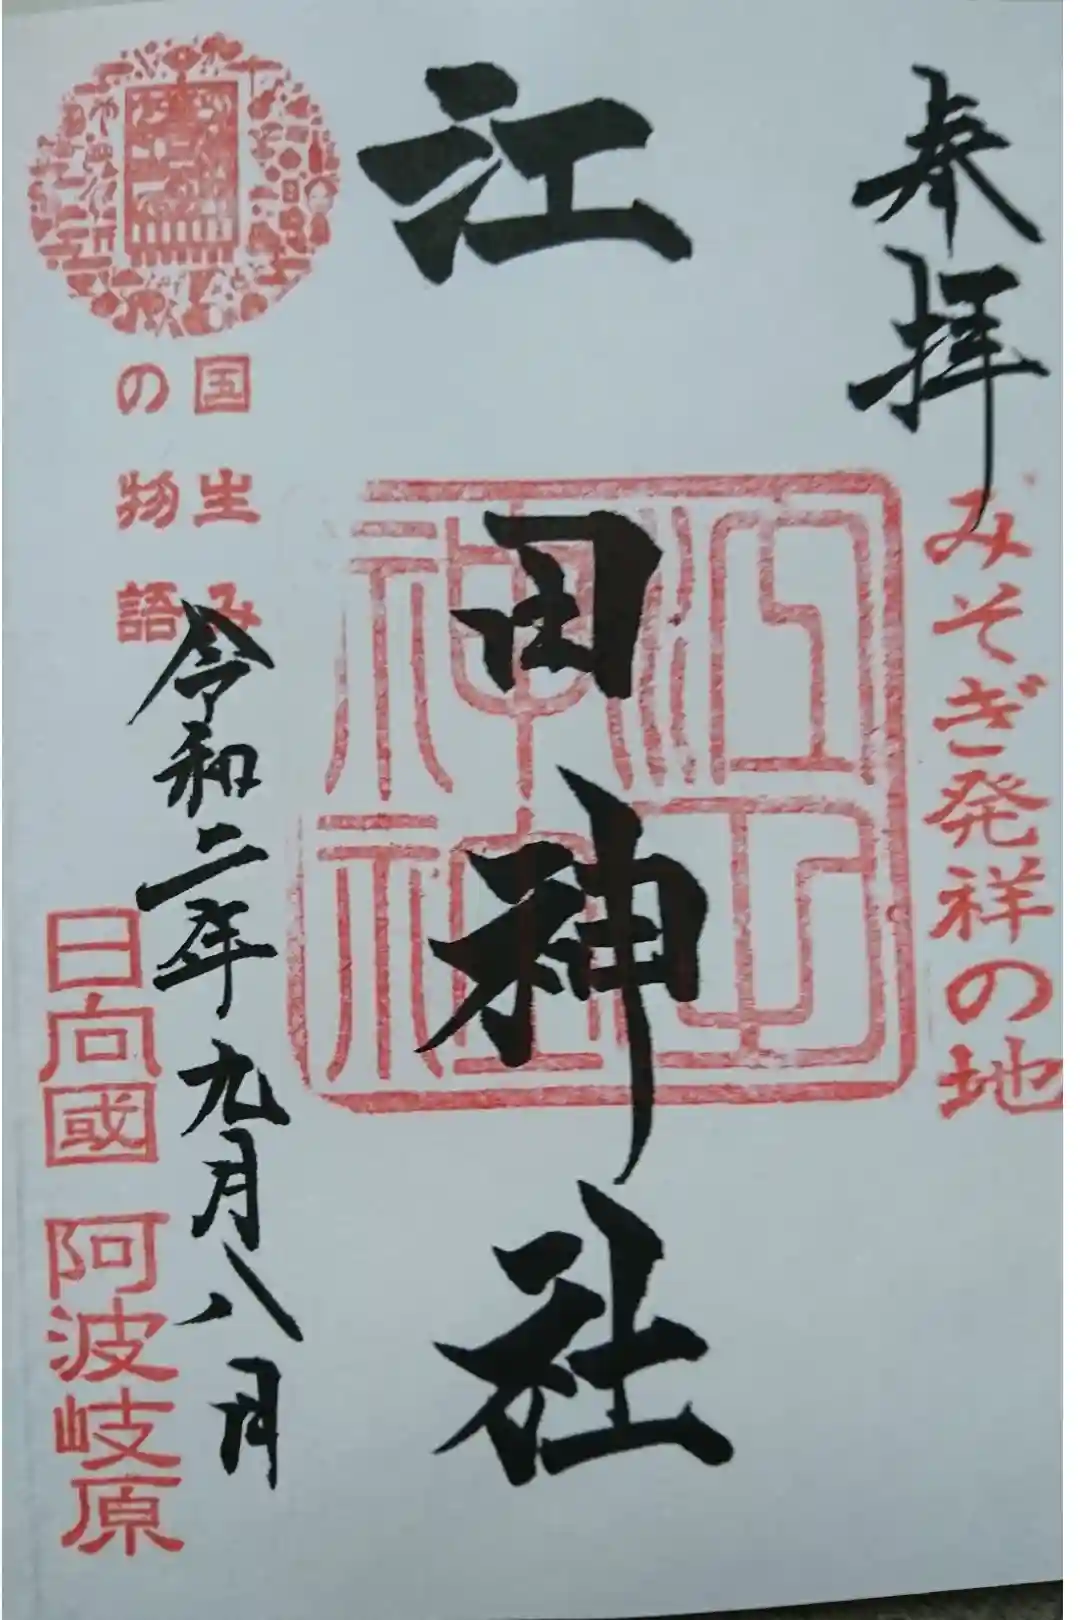 奉拝
みそぎ発祥の地
江田神社
江田
神社
令和二年九月八日
国生み
の物語
日向國 阿波岐原